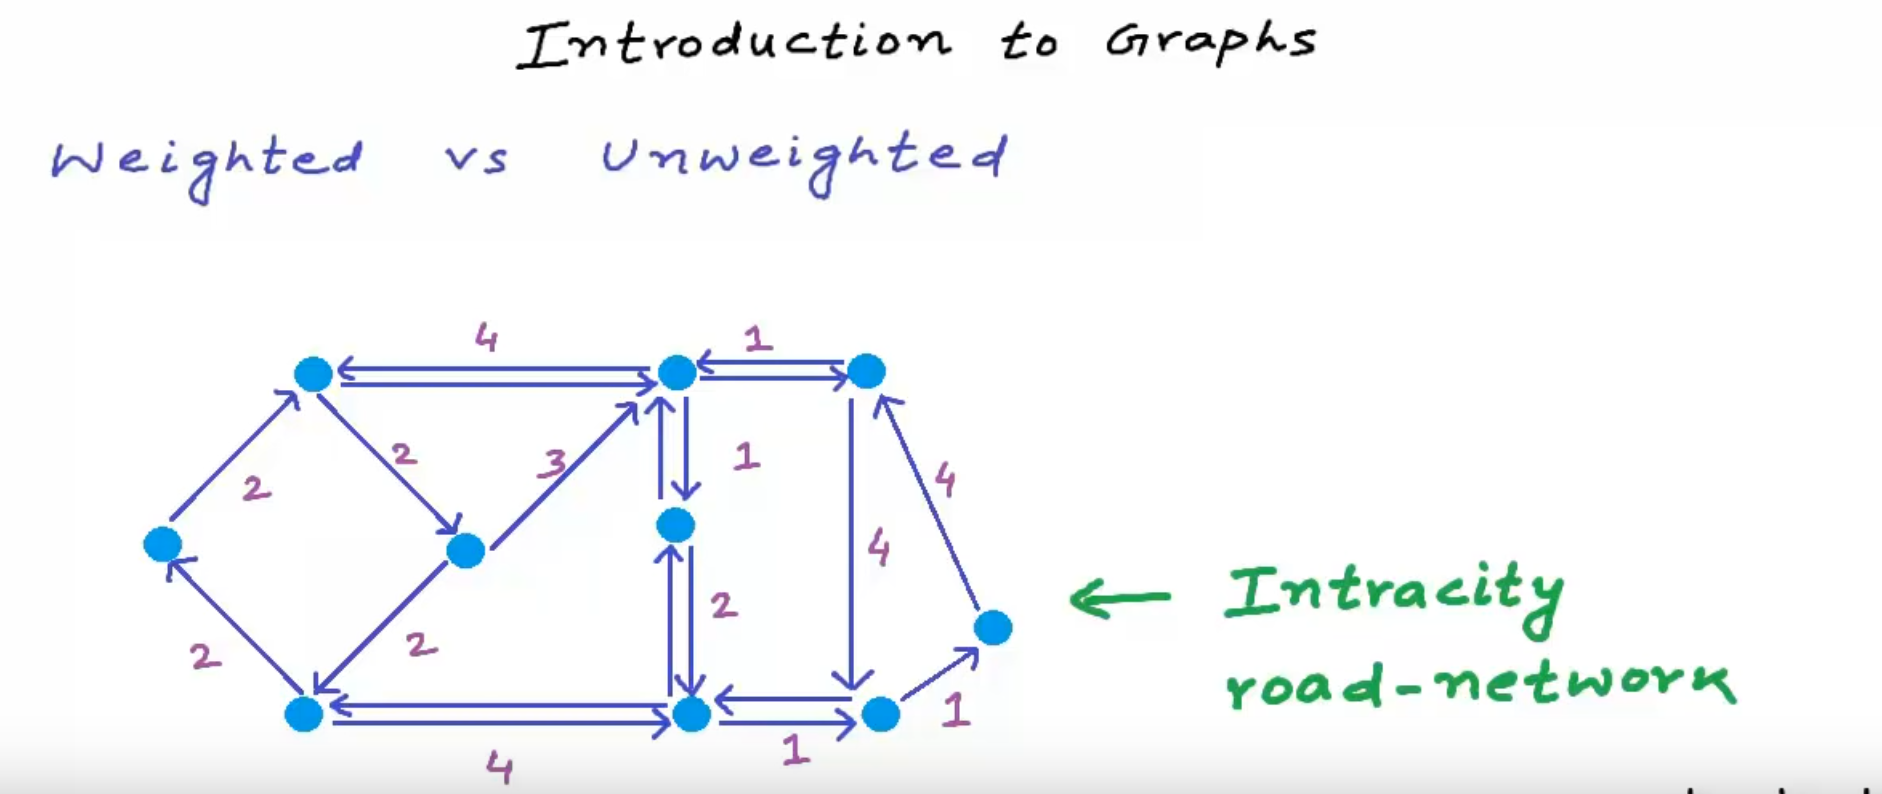 Introduction to Graphs
Weighted vs Unweighted
4 1
2 2 3 1 4
4
2 2 2
1
4 1
Intracity
road-network